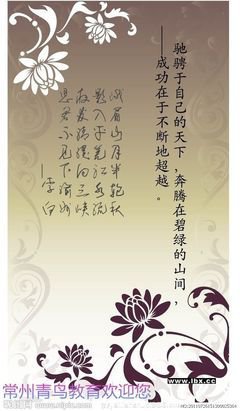 驰骋于自己的天下，奔腾在碧绿的山间，
——成功在于不断地超越。
峨眉山月半轮秋
影入平羌江水流
夜发清溪向三峡
思君不见下渝州
——李白
常州青鸟教育欢迎您
www.lbx.cc